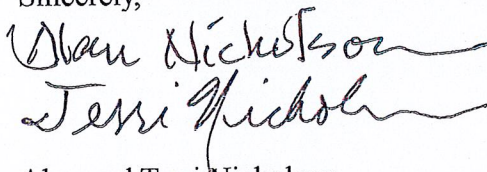 Sincerely,
Alan Nicholson
Terri Nicholson
Alan and Terri Nicholson